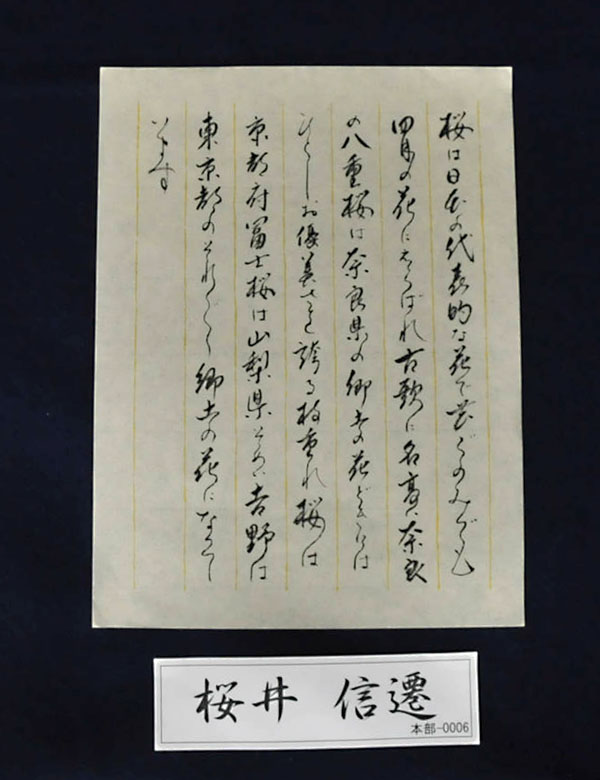 桜は日本の代表的な花で花ごよみでも
四月の花にえらばれ古歌に名高い奈良
の八重桜は奈良県の郷土の花どきには
ひとしお優美さを誇る枝垂れ桜は
京都府冨士桜は山梨県そめい吉野は
東京都のそれぞれ郷土の花になって
います
桜井 信遷
本部-0006